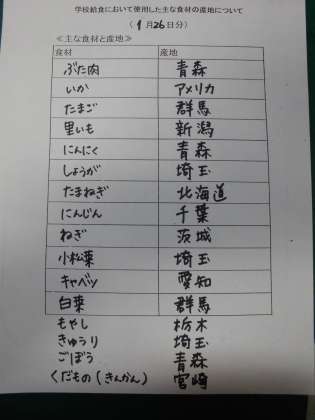 学校給食において使用した主な食材の産地について
(1月26日分)
≪主な食材と産地≫
食材 産地
ぶた肉 青森
いか アメリカ
たまご 群馬
里いも 新潟
にんにく 青森
しょうが 埼玉
たまねぎ 北海道
にんじん 千葉
ねぎ 茨城
小松菜 埼玉
キャベツ 愛知
白菜 群馬
もやし 栃木
きゅうり 埼玉
ごぼう 青森
くだもの(きんかん) 宮崎